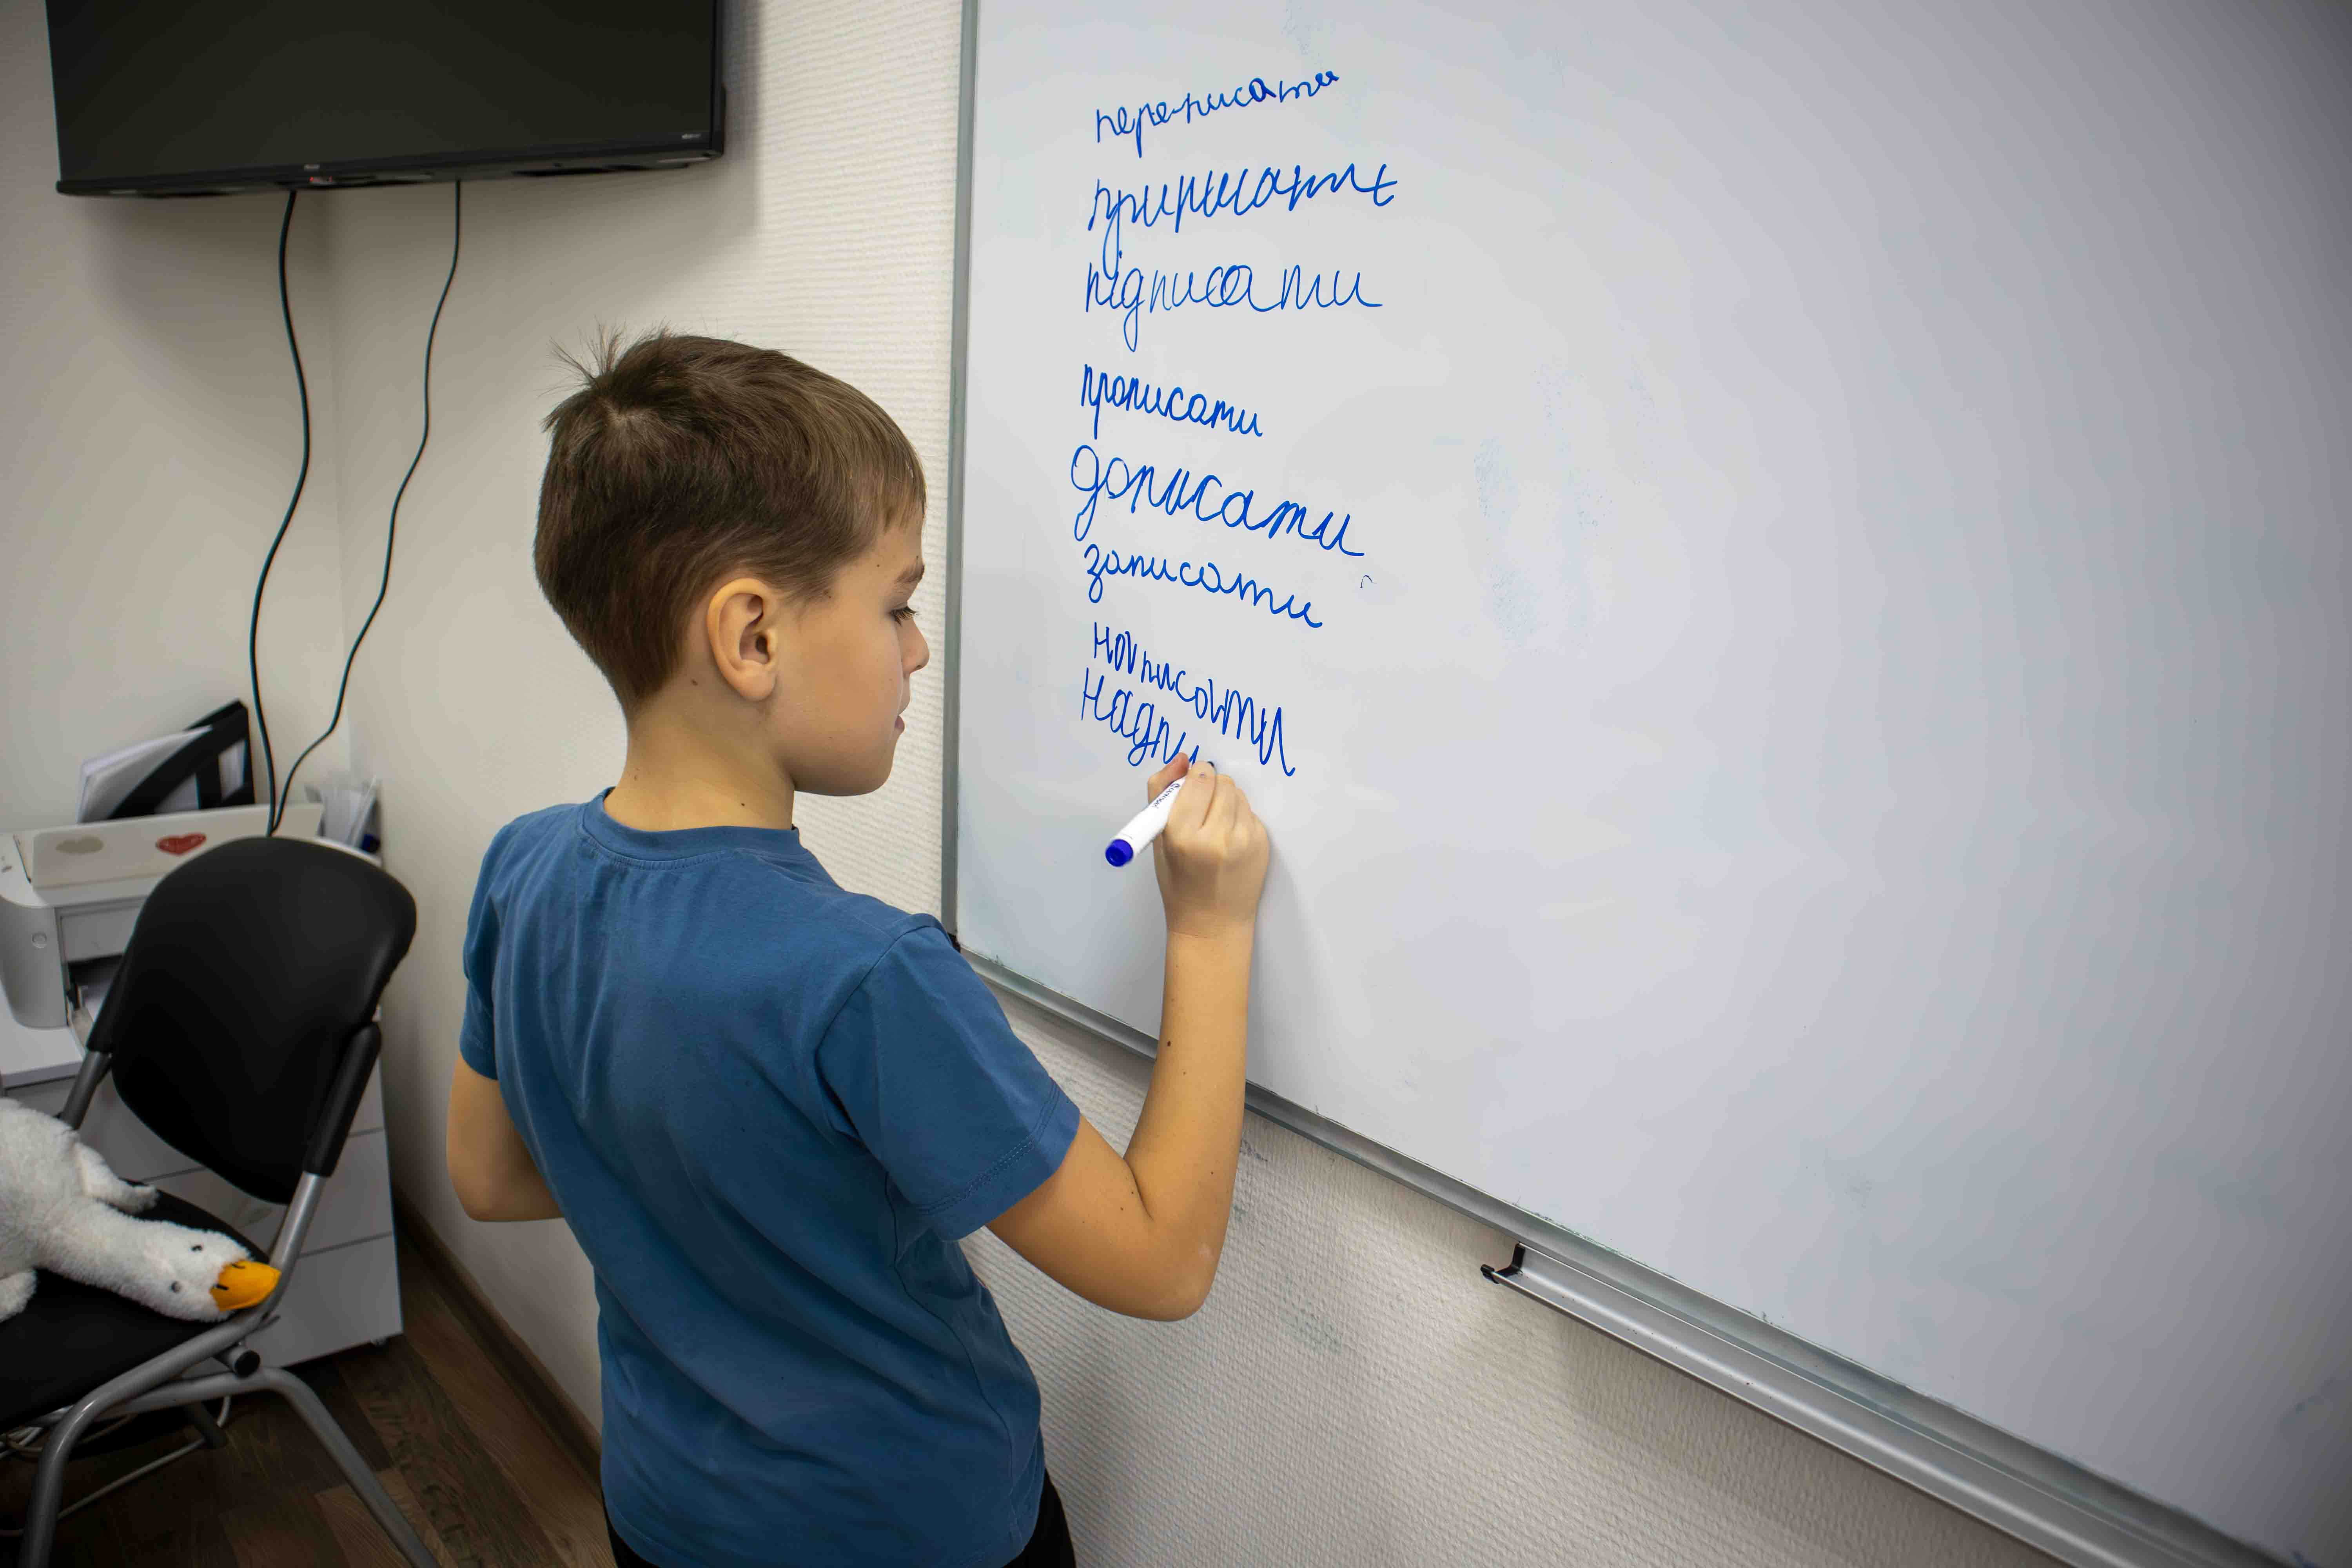 переписати
приписати
підписати
прописати
дописати
записати
написати
надпи